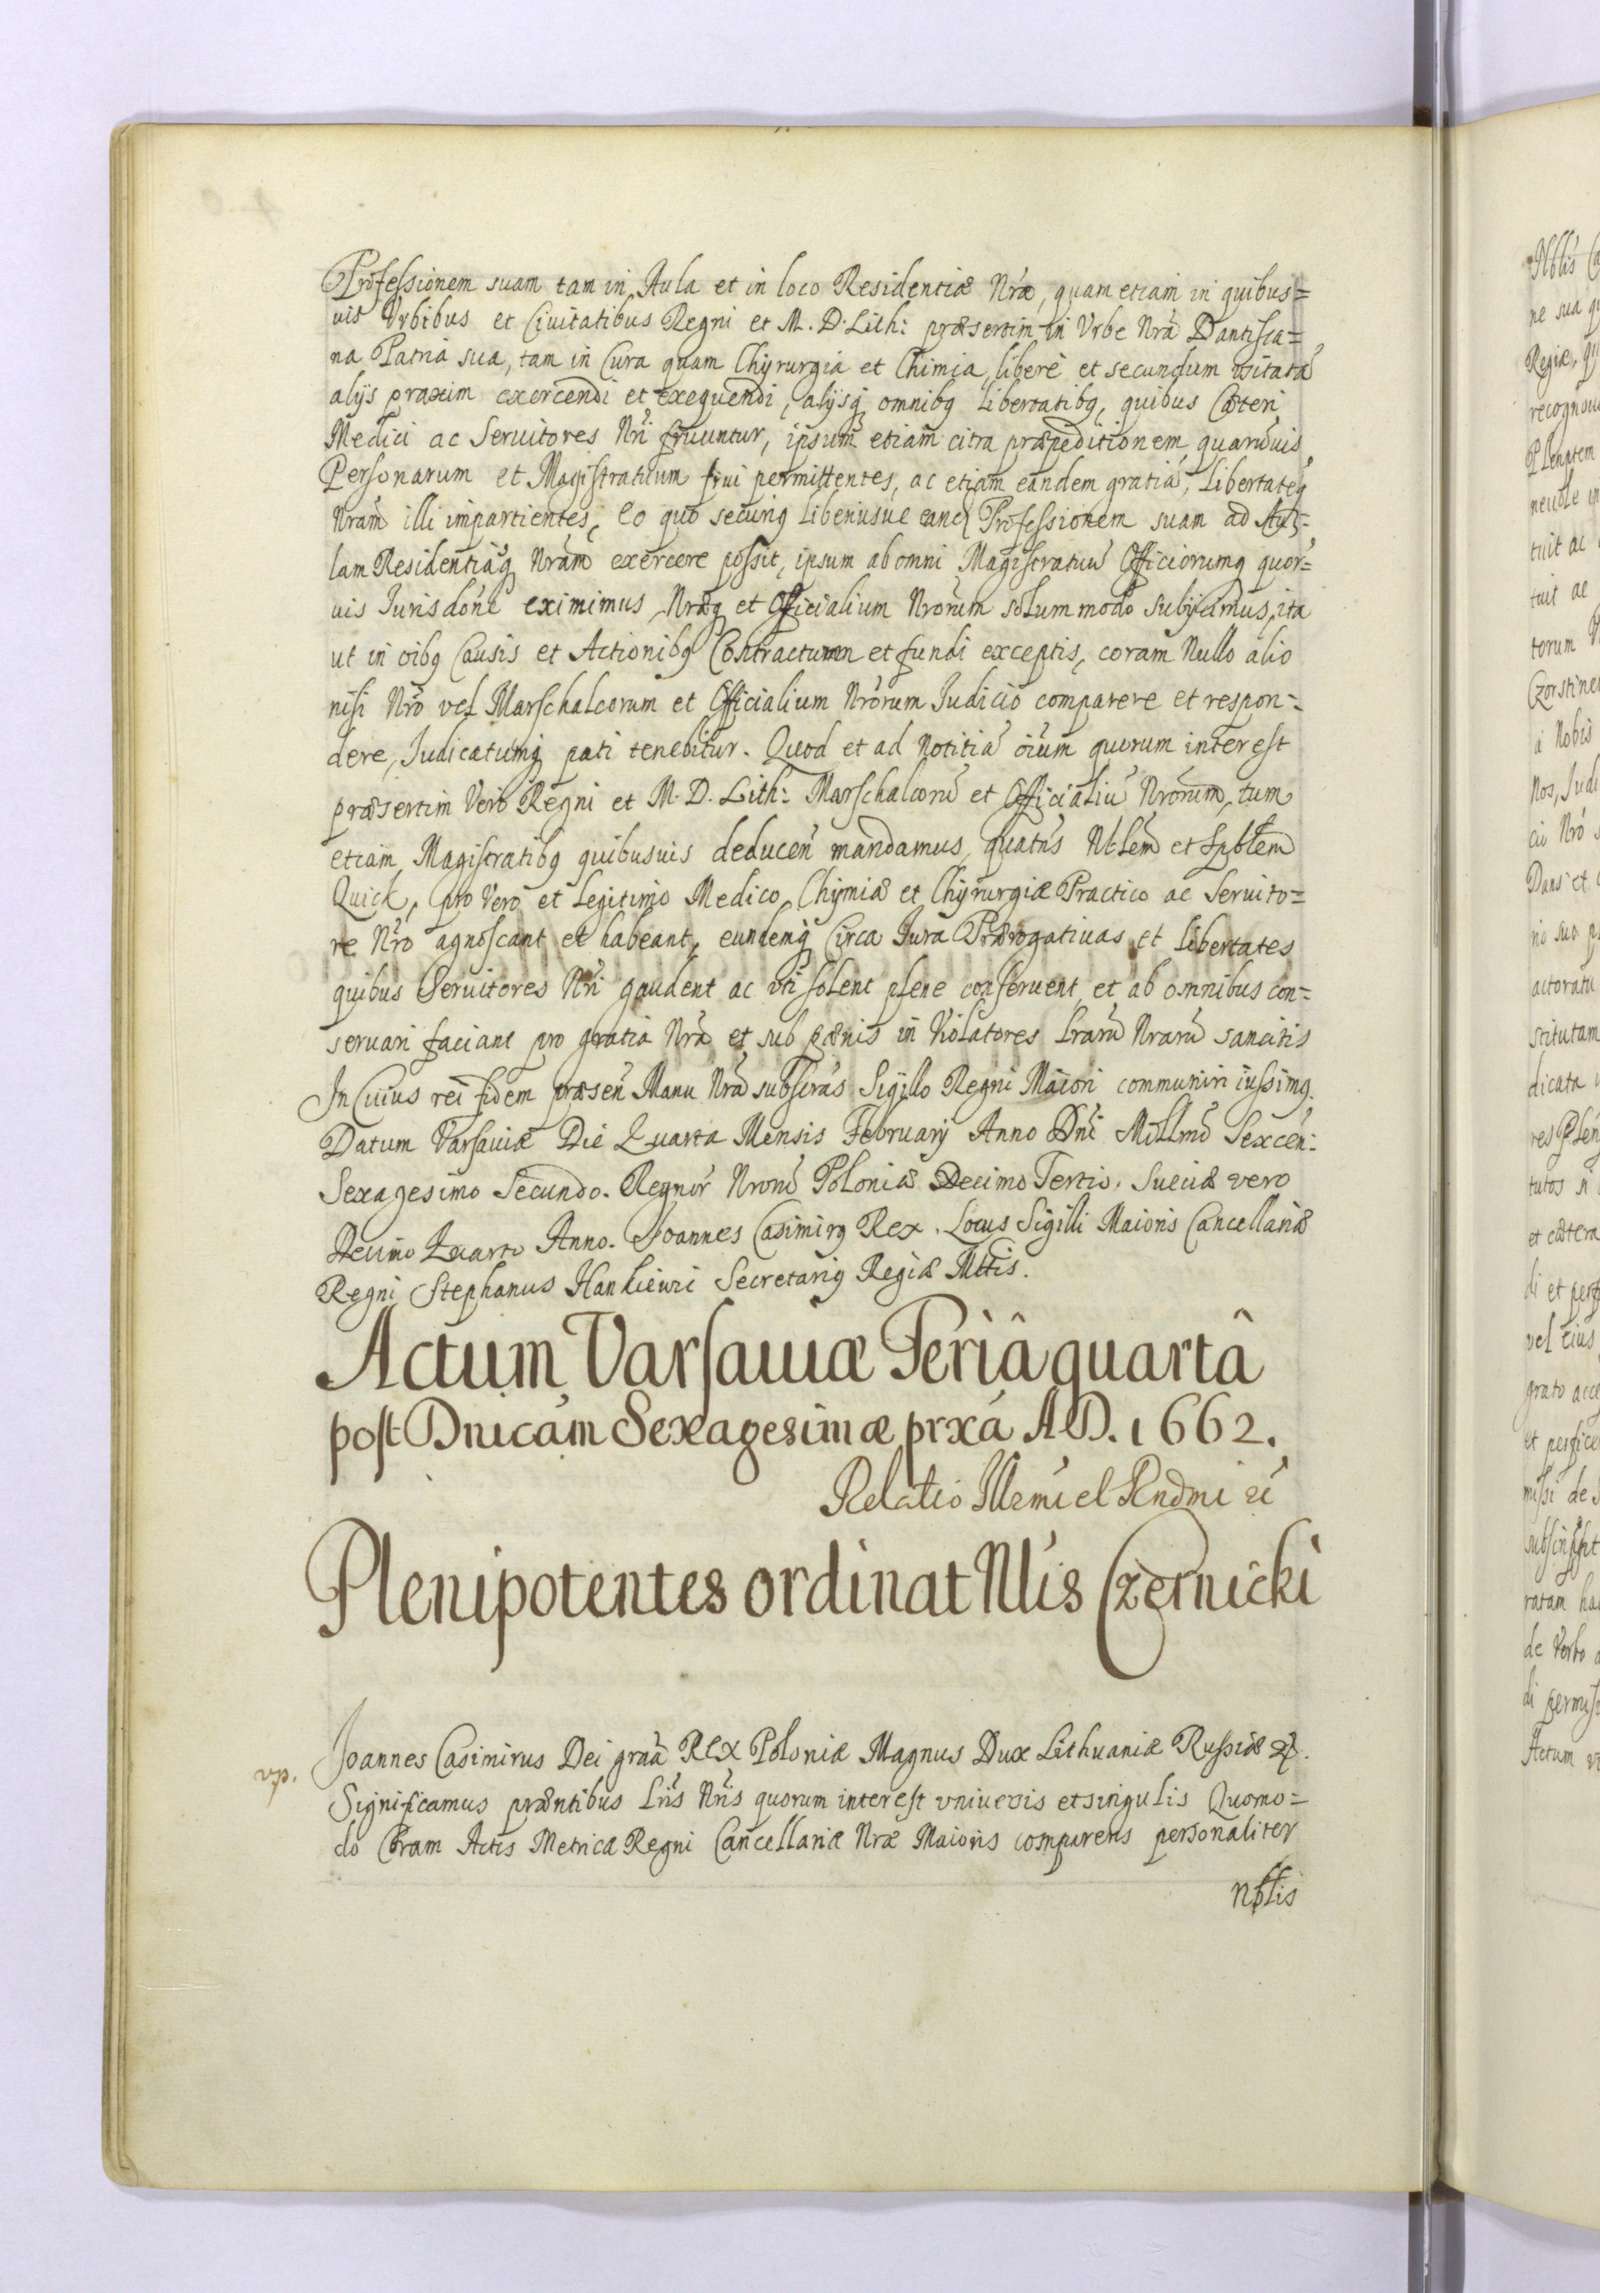 Professionem suam tam in Aula et in loco Residentiæ Nræ, quam etiam in quibus=
vis Vrbibus et Civitatibus Regni et M. D. Lith: præsertim in Vrbe Nrã Dantisca=
na Patria sua, tam in Cura quam Chyrurgia et Chimia, liberè et secundum usitatã
alijs praxim exercendi et exequendi, alijsq omnibq libertatibq, quibus Cæteri
Medici ac Seruitores Nri fruuntur, ipsum etiam citra præpeditionem quarũuis
Personarum et Magistratuum frui permittentes, ac etiam eandem gratiã, Libertatẽq
Nram illi impartientes, Eo quo securiq liberiusue eand Professionem suam ad Au=
lam Residentiãq Nram exercere possit, ipsum ab omni Magistratuũ Officiorumq quor=
uis Jurisdõne eximimus, Nræq et Officialium Nrorum solummodo subijcimus, ita
ut in oibq Causis et Actionibq Contractuum et fundi exceptis, coram Nullo alio
nisi Nrõ vel Marschalcorum et Officialium Nrorum Judicio comparere et respon=
dere, Judicatumq pati tenebitur. Quod et ad Notitiã oium quorum interest
præsertim Vero Regni et M. D. Lith: Marschalcorũ et Officialiũ Nrorum, tum
etiam Magistratibq quibusuis deducen mandamus, quatns Nblem et Spblem
Quick, pro Vero et Legitimo Medico, Chymiæ et Chyrurgiæ Practico ac Seruito=
re Nrõ agnoscant et habeant, eundemq Circa Jura Prærogatiuas et Libertates
quibus Seruitores Nri gaudent ac vti solent plene conseruent et ab omnibus con=
seruari faciant pro gratia Nrã et sub pænis in Violatores Lrarũ Nrarũ sancitis
In Cuius rei fidem præsen Manu Nrã subscras Sigillo Regni Maiori communiri iussimq.
Datum Varsauiæ Die Quarta Mensis Februarij Anno Dni Millmo Sexcen:
Sexagesimo Secundo. Regnor Nrorũ Poloniæ Decimo Tertio, Sueciæ vero
Decimo Quarto Anno. Joannes Casimirq Rex. Locus Sigilli Maioris Cancellariæ
Regni Stephanus Hankiewi Secretariq Regiæ Mttis.
Actum Varsauiæ Feriâ quartâ
post Dnicam Sexagesimæ prxã A.D. 1662.
Relatio Illrmi et Rndmi
Plenipotentes ordinat Nlis Czernicki
vp.
Joannes Casimirus Dei graã Rex Poloniæ Magnus Dux Lithuaniæ Russiæ
Significamus præntibus Lris Nris quorum interest vniuersis et singulis Quomo=
do Coram Actis Metricæ Regni Cancellariæ Nræ Maioris comparens personaliter
Nblis